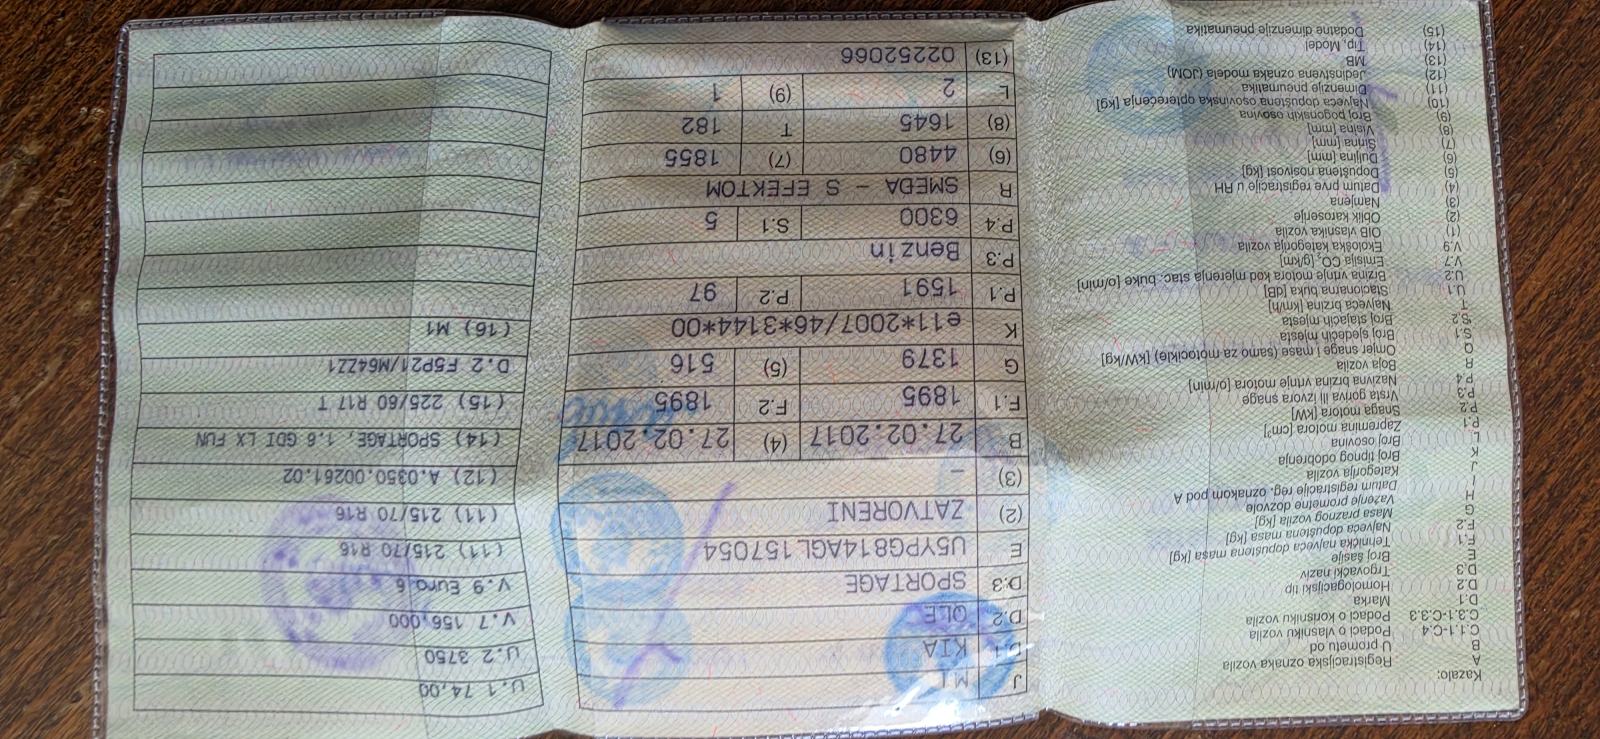 Kazalo:
A Registracijska oznaka vozila
B U prometu od
C.1.1-C.4 Podaci o vlasniku vozila
C.3.1-C.3.3 Podaci o korisniku vozila
D.1 Marka
D.2 Homologacijski tip
D.3 Trgovački naziv
E Broj šasije
F.1 Tehnička najveća dopuštena masa [kg]
F.2 Najveća dopuštena masa [kg]
G Masa praznog vozila [kg]
H Važenje prometne dozvole
I Datum registracije reg. oznakom pod A
J Kategorija vozila
K Broj tipnog odobrenja
L Broj osovina
P.1 Zapremina motora [cm³]
P.2 Snaga motora [kW]
P.3 Vrsta goriva ili izvora snage
P.4 Nazivna brzina vrtnje motora [o/min]
R Boja vozila
Q Omjer snage i mase (samo za motocikle) [kW/kg]
S.1 Broj sjedećih mjesta
S.2 Broj stajaćih mjesta
T Najveća brzina [km/h]
U.1 Stacionarna buka [dB]
U.2 Brzina vrtnje motora kod mjerenja stac. buke [o/min]
V.7 Emisija CO₂ [g/km]
V.9 Ekološka kategorija vozila
(1) OIB vlasnika vozila
(2) Oblik karoserije
(3) Namjena
(4) Datum prve registracije u RH
(5) Dopuštena nosivost [kg]
(6) Duljina [mm]
(7) Širina [mm]
(8) Visina [mm]
(9) Broj pogonskih osovina
(10) Najveća dopuštena osovinska opterećenja [kg]
(11) Dimenzije pneumatika
(12) Jedinstvena oznaka modela (JOM)
(13) MB
(14) Tip, Model
(15) Dodatne dimenzije pneumatika
J M1
D.1 KIA
D.2 QLE
D.3 SPORTAGE
E U5YPG814AGL157054
(2) ZATVORENI
(3) –
B 27.02.2017 (4) 27.02.2017
F.1 1895 F.2 1895
G 1379 (5) 516
K e11*2007/46*3144*00
P.1 1591 P.2 97
P.3 Benzin
P.4 6300 S.1 5
R SMEĐA - S EFEKTOM
(6) 4480 (7) 1855
(8) 1645 T 182
L 2 (9) 1
(13) 02252066
U.1 74,00
U.2 3750
V.7 156,000
V.9 Euro 6
(11) 215/70 R16
(11) 215/70 R16
(12) A.0350.00261.02
(14) SPORTAGE, 1.6 GDI LX FUN
(15) 225/60 R17 T
D.2 F5P21/M64ZZ1
(16) M1